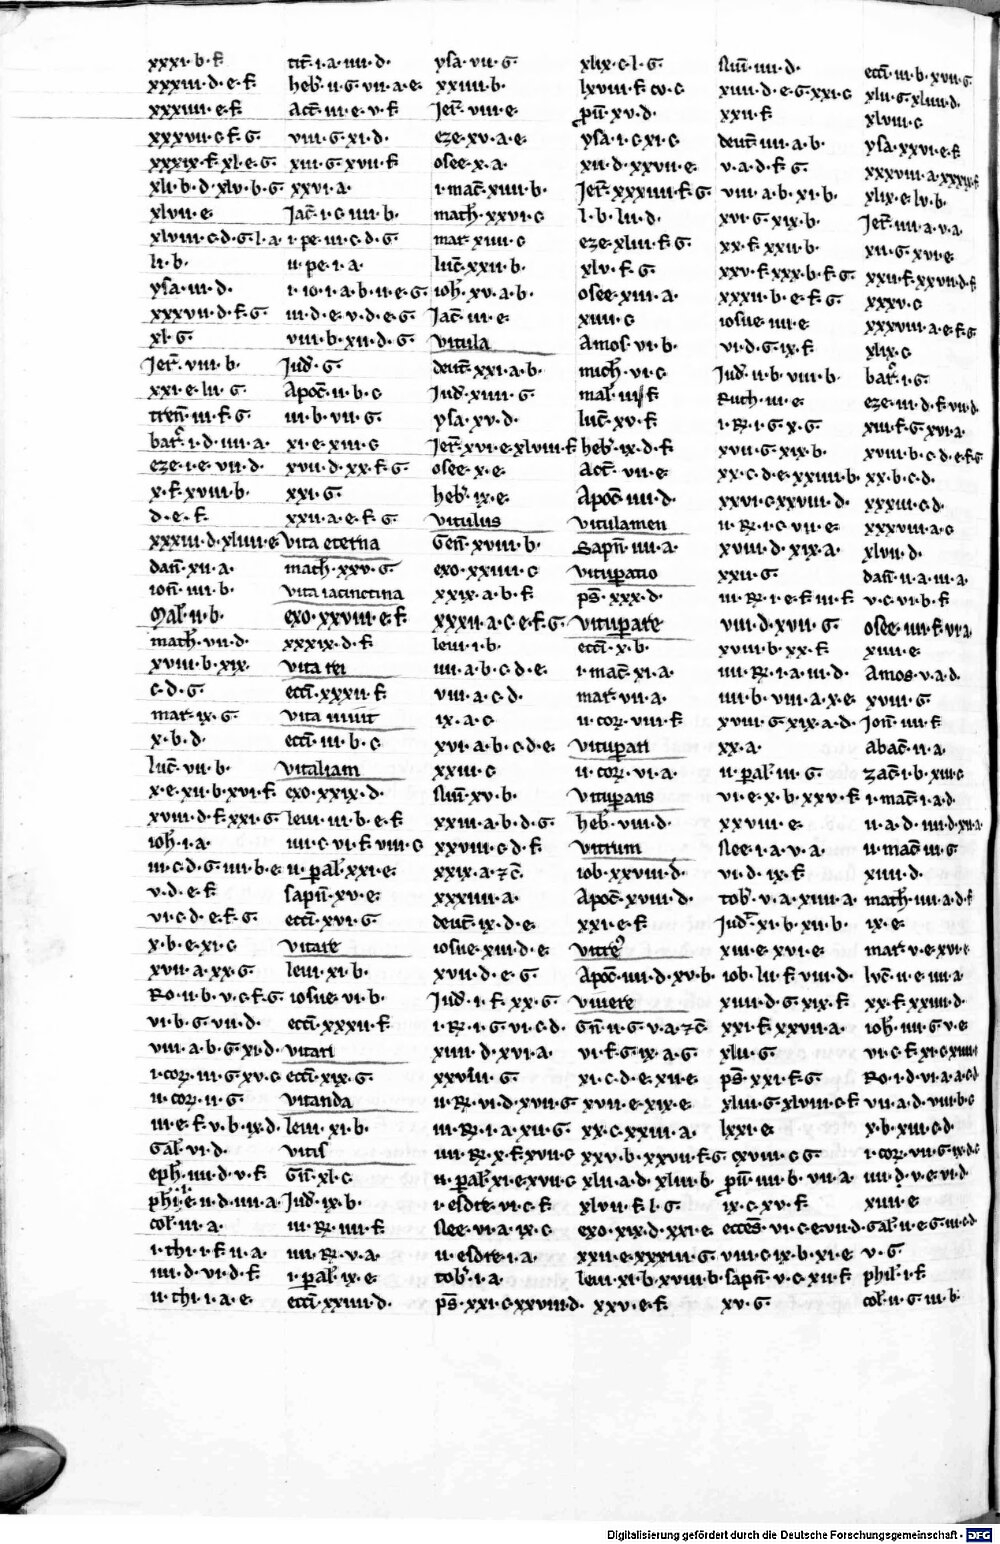 xxxi·b·f
xxxiii·d·e·f
xxxiiii·e·f
xxxvii·c·f·G
xxxix·f·xl·e·G
xli·b·d·xlv·b·G
xlvii·e
xlviii·c·d·G·l·a
li·b·
ysa·iii·d·
xxxvii·d·f·G
xl·G·
Jer̄·viii·b·
xxi·e·lii·G
tren̄·iii·f·G
bar̄·i·d·iiii·a·
eze·i·e·vii·d·
x·f·xviii·b·
d·e·f·
xxxiii·d·xliiii·e
dan̄·xii·a·
ion̄·iiii·b·
Mal̄·ii·b·
math̄·vii·d·
xviii·b·xix·
c·d·G·
mar·ix·G·
x·b·d·
luc̄·vii·b·
x·e·xii·b·xvi·f·
xviii·d·f·xxi·G
ioh̄·i·a·
iii·c·d·G·iiii·b·e
v·d·e·f·
vi·c·d·e·f·G·
x·b·e·xi·c
xvii·a·xx·G·
Ro·ii·b·v·c·f·G
vi·b·G·vii·d·
viii·a·b·G·xi·d·
i·cor·iii·G·xv·c
ii·cor·ii·G·
iii·e·f·v·b·ix·d·
Gal̄·vi·d·
eph̄·iiii·d·v·f·
col̄·iii·a·
i·thi·i·f·ii·a·
iiii·d·vi·d·f·
ii·thi·i·a·e·
tit̄·i·a·iiii·d·
heb̄·ii·G·vii·a·e·
Act̄·iii·e·v·f·
viii·G·xi·d·
xiii·G·xvii·f·
xxvi·a·
Jac̄·i·c·iiii·b·
i·pe·iii·c·d·G·
ii·pe·i·a·
i·io·i·a·b·ii·e·G
iii·d·e·v·d·e·G
viii·b·xii·d·G
Jud̄·G·
Apoc̄·ii·b·c
iii·b·vii·G·
xi·e·xiii·G
xvii·d·xx·f·G
xxi·G·
xxii·a·e·f·G·
vita eterna
math̄·xxv·G·
vita iacinctina
exo·xxviii·e·f
xxxix·d·f·
vita rei
ecci̅·xxxii·f
vita viuit
ecci̅·iii·b·c
vitaliam
exo·xxix·d·
leui·iii·b·e·f
iiii·c·vi·f·viii·c
ii·pal̄·xxi·e·
sapn̄·xv·e·
ecci̅·xvi·G·
vitare
leui·xi·b·
iosue·vi·b·
ecci̅·xxxii·f
vitari
ecci̅·xix·G·
vitanda
leui·xi·b·
vitis
Gn̄·xl·c
Jud̄·ix·b·
iii·R·iiii·f
iiii·R·v·a·
i·pal̄·ix·e·
ecci̅·xxiiii·d·
ysa·vii·G·
xxiiii·b·
Jer̄·viii·e·
eze·xv·a·e·
osee·x·a·
i·mac̄·xiiii·b·
math̄·xxvi·c
mar·xiiii·c
luc̄·xxii·b·
ioh̄·xv·a·b·
Jac̄·iii·e·
vitula
deut̄·xxi·a·b·
Jud̄·xiiii·G·
ysa·xv·d·
Jer̄·xvi·e·xlviii·f
osee·x·e·
heb̄·ix·e·
vitulus
Gen̄·xviii·b·
exo·xxiiii·c
xxix·a·b·f·
xxxii·a·c·e·f·G
leui·i·b·
iiii·a·b·c·d·e·
viii·a·c·d·
ix·a·c
xvi·a·b·c·d·e·
xxiii·c
Nūi·xv·b·
xxiii·a·b·d·G
xxviii·c·d·f·
xxix·a·⁊c̄
xxxiiii·a·
deut̄·ix·d·e·
iosue·xiii·d·e
xvii·d·e·G·
Jud̄·i·f·xx·G
i·R·i·G·vi·c·d·
xiiii·d·xvi·a·
xxviii·G·
ii·R·vi·d·xvii·G
iii·R·i·a·xii·G
iiii·R·x·f·xvii·c
ii·pal̄·xi·e·xvii·c
i·esdre·vi·c·f
Nee·vi·a·ix·c
ii·esdre·i·a·
tob̄·i·a·
ps̄·xxi·c·xxviii·d·
xlix·c·l·G·
lxviii·f·cv·c
pūi·xv·d·
ysa·i·c·xi·c
xii·d·xxvii·e·
Jer̄·xxxiiii·f·G
l·b·lii·d·
eze·xliii·f·G
xlv·f·G·
osee·xiii·a·
xiiii·c
Amos·vi·b·
mich̄·vi·c
luc̄·xv·f·
heb̄·ix·d·f
Act̄·vii·e·
Apoc̄·iiii·d·
vitulamen
Sapn̄·iiii·a·
vituperatio
ps̄·xxx·d·
vituperare
ecci̅·x·b·
i·mac̄·xi·a·
mar·vii·a·
ii·cor·viii·f
vituperari
ii·cor·vi·a·
vituperans
heb̄·viii·d·
vitrum
iob·xxviii·d·
Apoc̄·xviii·d·
xxi·e·f·
Apoc̄·iiii·d·xv·b
viuere
Gn̄·ii·G·v·a·⁊c̄
vi·f·G·ix·a·G
xi·c·d·e·xii·e
xvii·e·xix·e·
xx·c·xxiii·a·
xxv·b·xxvii·f·G
xlii·a·d·xliii·b
xlvii·f·l·G
exo·xix·d·xxi·e
xxii·e·xxxiii·G
leui·xi·b·xviii·b
xxv·e·f
Nūi·iiii·d·
xiiii·d·e·G·xxi·c
xxii·f·
deut̄·iiii·a·b·
v·a·d·f·G
viii·a·b·xi·b·
xvi·G·xix·b·
xx·f·xxii·b·
xxv·f·xxx·b·f·G
xxxii·b·e·f·G
iosue·iiii·e
vi·d·G·ix·f
Jud̄·ii·b·viii·b·
Ruth·iii·e·
i·R·i·G·x·G·
xvii·G·xix·b·
xx·c·d·e·xxiiii·b
xxvi·c·xxviii·d·
ii·R·i·c·vii·e·
xviii·d·xix·a·
xxii·G·
iii·R·i·e·f·iii·f
viii·d·xvii·G
xviii·b·xx·f·
iiii·R·i·a·iii·d·
iiii·b·viii·a·x·e
xviii·G·xix·a·d·
xx·a·
ii·pal̄·iii·G·
vi·e·x·b·xxv·f
xxviii·e·
Nee·i·a·v·a·
vi·d·ix·f·
tob̄·v·a·xiiii·a·
Jud̄·xi·b·xii·b·
xiii·e·xvi·e·
iob·lii·f·viii·d·
xiiii·d·G·xix·f·
xxi·f·xxvii·a·
xlii·G·
ps̄·xxi·f·G
xliii·G·xlviii·c·f
lxxi·e·
cxviii·c·G
pūi·iiii·b·vii·a·
ix·c·xv·f·
ecces̄·vi·c·e·vii·d·
viii·c·ix·b·xi·e
sapn̄·v·c·xii·f
xv·G·
ecci̅·iii·b·xvii·G
xlii·G·xliii·d·
xlviii·c
ysa·xxvi·e·f
xxxviii·a·xxxix·f
xlix·c·lv·b·
Jer̄·iiii·a·v·a·
xii·G·xvi·e·
xxii·f·xxvii·d·f
xxxv·c
xxxviii·a·e·f·G
xlix·c
bar̄·i·G·
eze·iii·d·f·vii·d·
xiii·f·G·xvi·a·
xviii·b·c·d·e·f·G
xx·b·c·d·
xxxiii·c·d·
xxxviii·a·c
xlvii·d·
dan̄·ii·a·iii·a·
v·c·vi·b·f
osee·iiii·f·vi·a·
xiiii·e
Amos·v·a·d·
xviii·G·
Jon̄·iiii·f
abac̄·ii·a·
zac̄·i·b·xiii·c
i·mac̄·i·a·d·
ii·a·d·iiii·d·xii·a
ii·mac̄·iii·G
xiiii·d·
math̄·iiii·a·d·f
ix·e·
mar·v·e·xvi·e
luc̄·ii·e·iiii·a
xx·f·xxiiii·d·
ioh̄·iiii·G·v·e
vi·c·f·xi·c·xiiii·
Ro·i·d·vi·a·c·d
vii·a·d·viii·b·c
x·b·xiii·c·d·
i·cor·vii·G·ix·d·c
iiii·d·v·e·vi·d
xiii·e
Gal̄·ii·e·G·iii·c·d
v·G·
phil̄·i·f
col̄·ii·G·iii·b·
Digitalisierung gefördert durch die Deutsche Forschungsgemeinschaft - DFG